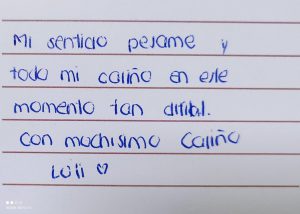 Mi sentido pesame y
todo mi cariño en este
momento tan dificil.
con muchisimo cariño
Loli ♡